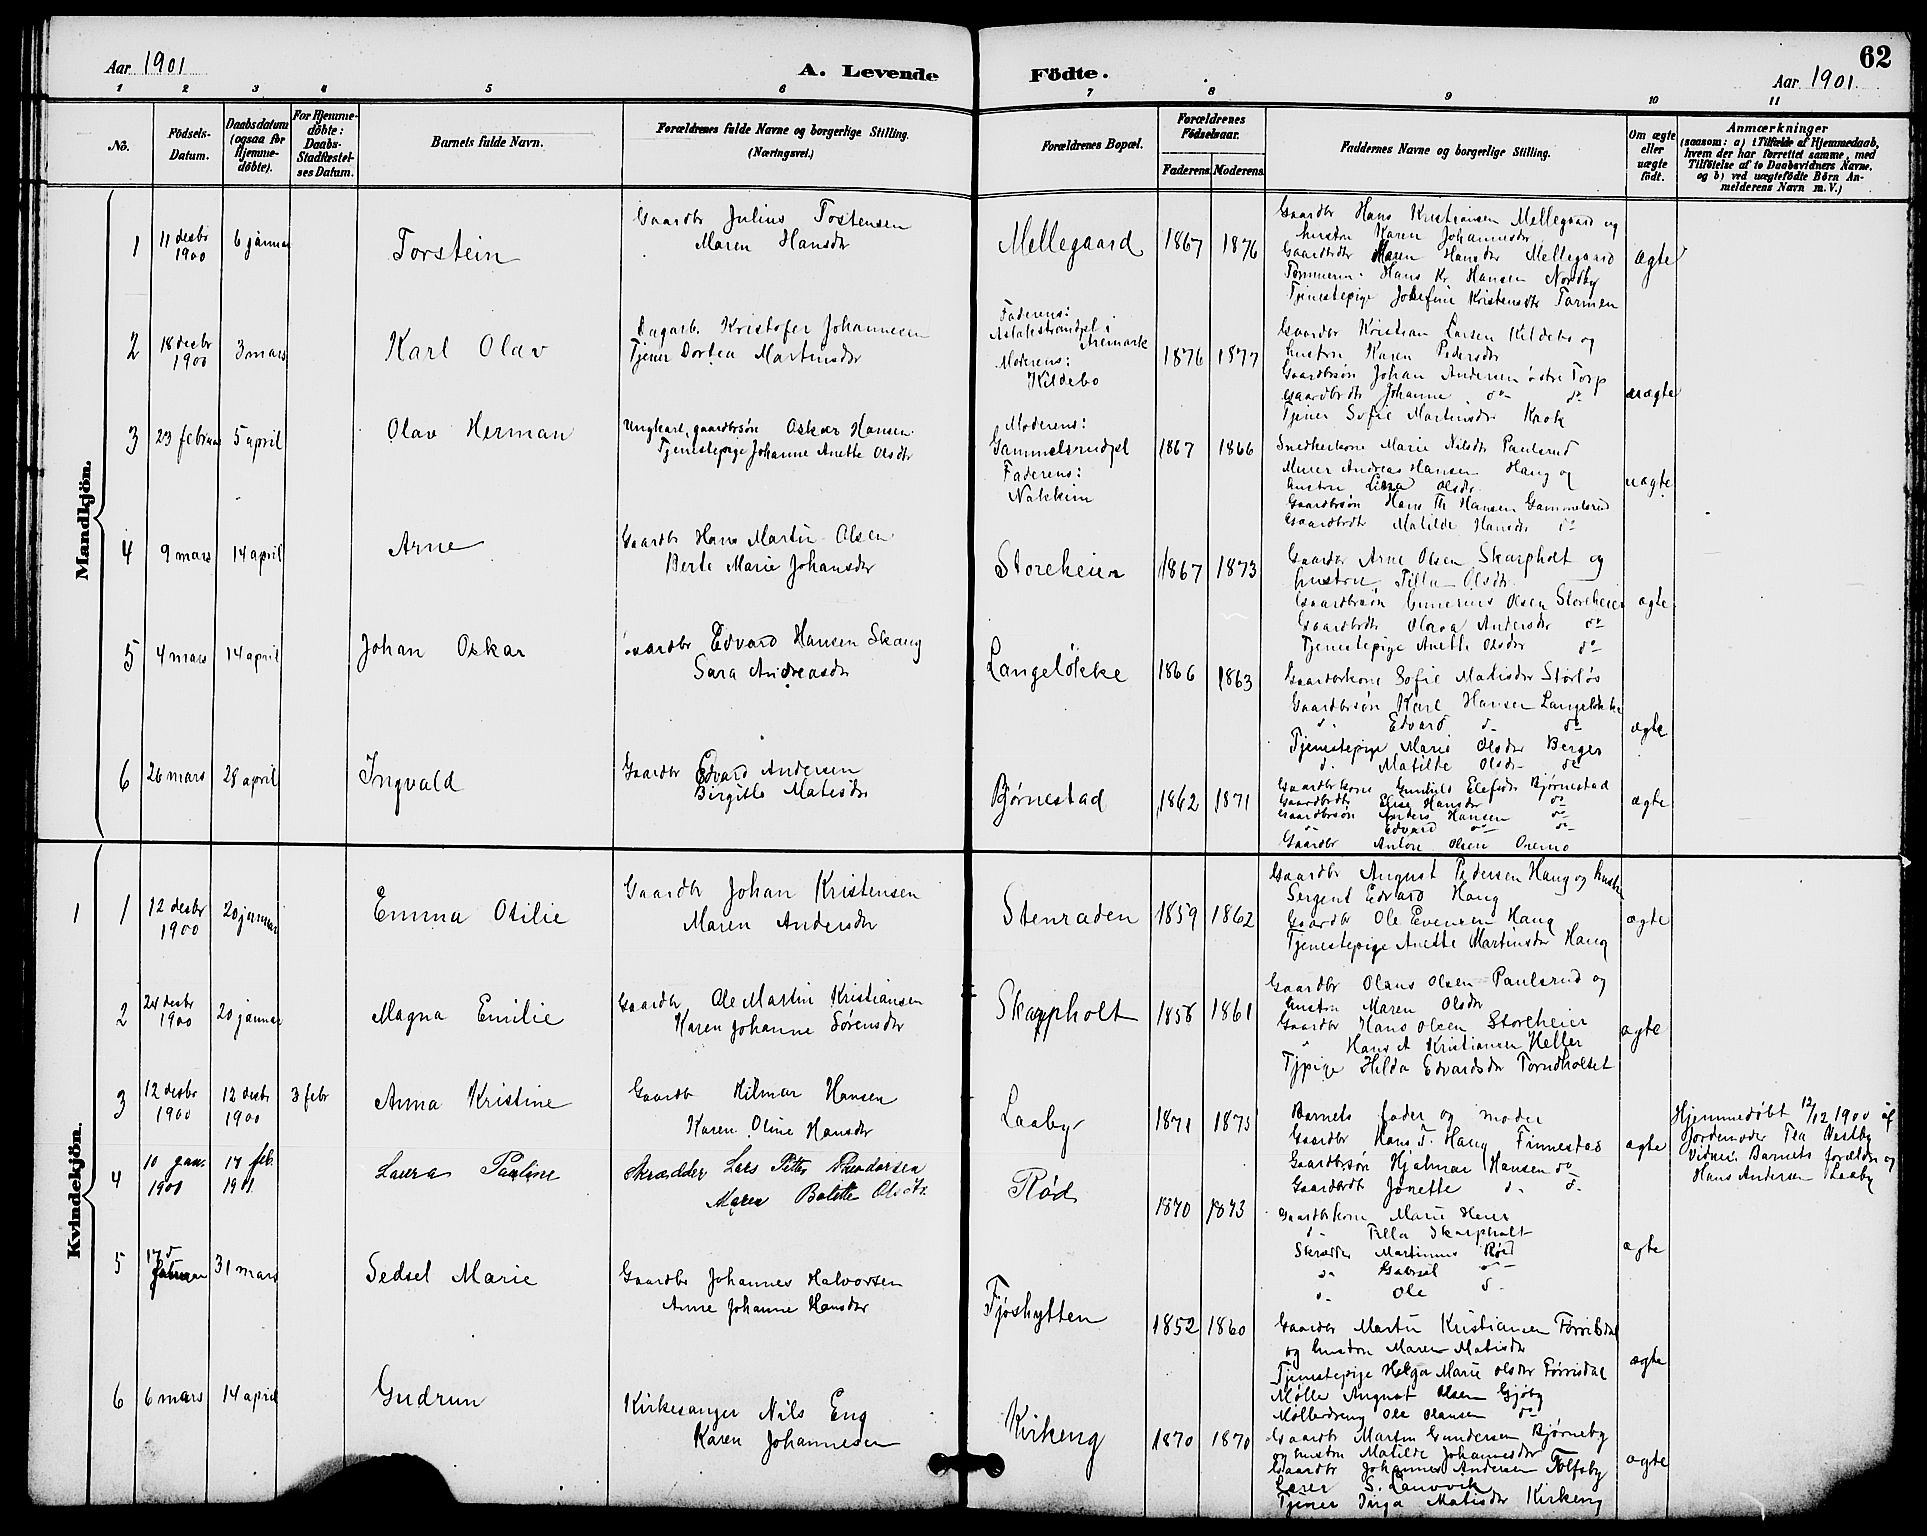 62
Aar 1901
A. Levende Födte.
Aar 1901
1 2 3 4 5 6 7 8 9 10 11
No.
Födsels-Datum.
Daabsdatum (ogsaa for Hjemme-döbte).
For Hjemme-döbte: Daabs-Stadfæstel-ses Datum.
Barnets fulde Navn.
Forældrenes fulde Navne og borgerlige Stilling. (Næringsvei.)
Forældrenes Bopæl.
Forældrenes Födselsaar.
Faderens. Moderens.
Faddernes Navne og borgerlige Stilling.
Om ægte eller uægte födt.
Anmærkninger
(saasom: a) i Tilfælde af Hjemmedaab, hvem der har forrettet samme, med Tilföielse af to Daabsvidners Navne. og b) ved uægtefödte Börn An-melderens Navn m. V.)
Mandkjön.
1 11 desbr 1900 6 januar Torstein
Gaardbr Julius Tostensen
Maren Hansdr
Mellegaard 1867 1876
Gaardbr Hans Kristiansen Mellegaard og
hustru Karen Johannesdr
Gaardbrdtr Maren Hansdr Mellegaard
Tømmerm. Hans Kr. Hansen Nordby
Tjenestepige Josefine Kristensdtr Tarmen
ægte
2 18 desbr 1900 3 mars Karl Olav
Dagarb. Kristofer Johannesen
Tjener Dortea Martinsdr
Faderens:
i Aremark
Moderens:
Kildebo
1876 1877
Gaardbr Kristian Larsen Kildebo og
hustru Karen Pedersdr
Gaardbrsøn Johan Andersen østre Torp
Gaardbrdtr Johanne do do
Tjener Sofie Martinsdr Krok
uægte
3 23 februar 5 april Olav Herman
Ungkarl, gaardbrsøn Oskar Hansen
Tjenestepige Johanne Anette Olsdtr
Moderens:
Gammelsrudpl
Faderens:
Nakkim
1867 1866
Snedkerkone Marie Nilsdtr Paulsrud
Murer Andreas Hansen Haug og
hustru Lina Olsdr.
Gaardbrsøn Hans Th Hansen Gammelsrud
Gaardbrdtr Matilde Hansdr do
uægte
4 9 mars 14 april Arne
Gaardbr Hans Martin Olsen
Berte Marie Johansdr
Storeheier 1867 1873
Gaardbr Arne Olsen Skarpholt og
hustru Tilla Olsdtr.
Gaardbrsøn Gunerius Olsen Storeheier
Gaardbrdtr Olava Andersdr do
Tjenestepige Anette Olsdr do
ægte
5 4 mars 14 april Johan Oskar
Gaardbr Edvard Hansen Skaug
Sara Andreasdr
Langeløkke 1866 1863
Gaardbrkone Sofie Matisdr Størløs
Gaardbrsøn Karl Hansen Langeløkke
d. Edvard d. do
Tjenestepige Marie Olsdr Berger
d. Matilde Olsdr do
ægte
6 26 mars 28 april Ingvald
Gaardbr Edvard Andersen
Birgitte Matisdr
Bjørnestad 1862 1871
Gaardbrkone Gunhild Elefsdr Bjørnestad
Gaardbrdtr Elise Hansdr do
Gaardbrsøn Anders Hansen do
do Edvard do do
Gaardbr Anton Olsen
ægte
Kvindekjön.
1 1 12 desbr 1900 20 januar Emma Otilie
Gaardbr Johan Kristensen
Maren Andersdr
Stenraden 1859 1862
Gaardbr August Pedersen Haug og hustru
Sergent Edvard Haug
Gaardbr Ole Evensen Haug
Tjenestepige Anette Martinsdr Haug
ægte
2 24 desbr 1900 20 januar Magna Emilie
Gaardbr Ole Martin Kristiansen
Karen Johanne Sørensdr
Skarpholt 1858 1861
Gaardbr Olaus Olsen Paulsrud og
hustru Maren Olsdr
Gaardbr Hans Olsen Storeheier
" Hans A Kristiansen Heller
Tjpige Hilda Edvardsdr Torndholtet
ægte
3 12 desbr 1900 12 desbr 1900 3 febr Anna Kristine
Gaardbr Hilmar Hansen
Karen Oline Hansdr
Laaby 1871 1875
Barnets fader og moder
Gaardbr Hans T. Haug Finnestad
Gaardbrsøn Hjalmar Hansen do
Gaardbrdt Jonette d. d.
ægte
Hjemmedøbt 12/12 1900 af
Jordemoder Tea Vestby
Vidner: Barnets forældre og
Hans Andersen Laaby
4 10 jan. 1901 17 feb. 1901. Laura Pauline
Skrædder Lars Petter Theodorsen
Maren Bolette Olsdtr.
Rød 1870 1873
Gaardbrkone Marie Heier
d. Tilla Skarpholt
Skrædder Martinius Rød
d. Gabriel do
d. Ole d.
ægte
5 17 31 mars Sedsel Marie
Gaardbr Johannes Halvorsen
Anne Johanne Hansdr
Fjøshytten 1852 1860
Gaardbr Martin Kristiansen Førrisdal
og hustru Maren Matisdr
Tjenestepige Helga Marie Olsdr Førrisdal
Møller August Olsen Gjøby
Mølledreng Ole Olausen do
ægte
6 6 mars 14 april Gudrun
Kirkesanger Nils Eng
Karen Johannesen
Kirkeng 1870 1870
Gaardbr Martin Gundersen Bjørneby
og hustru Matilde Johannesdr
Gaardbr Johannes Andersen Tolfsby
Lærer S. Lauvvik
Tjener Inga Matisdr Kirkeng
ægte